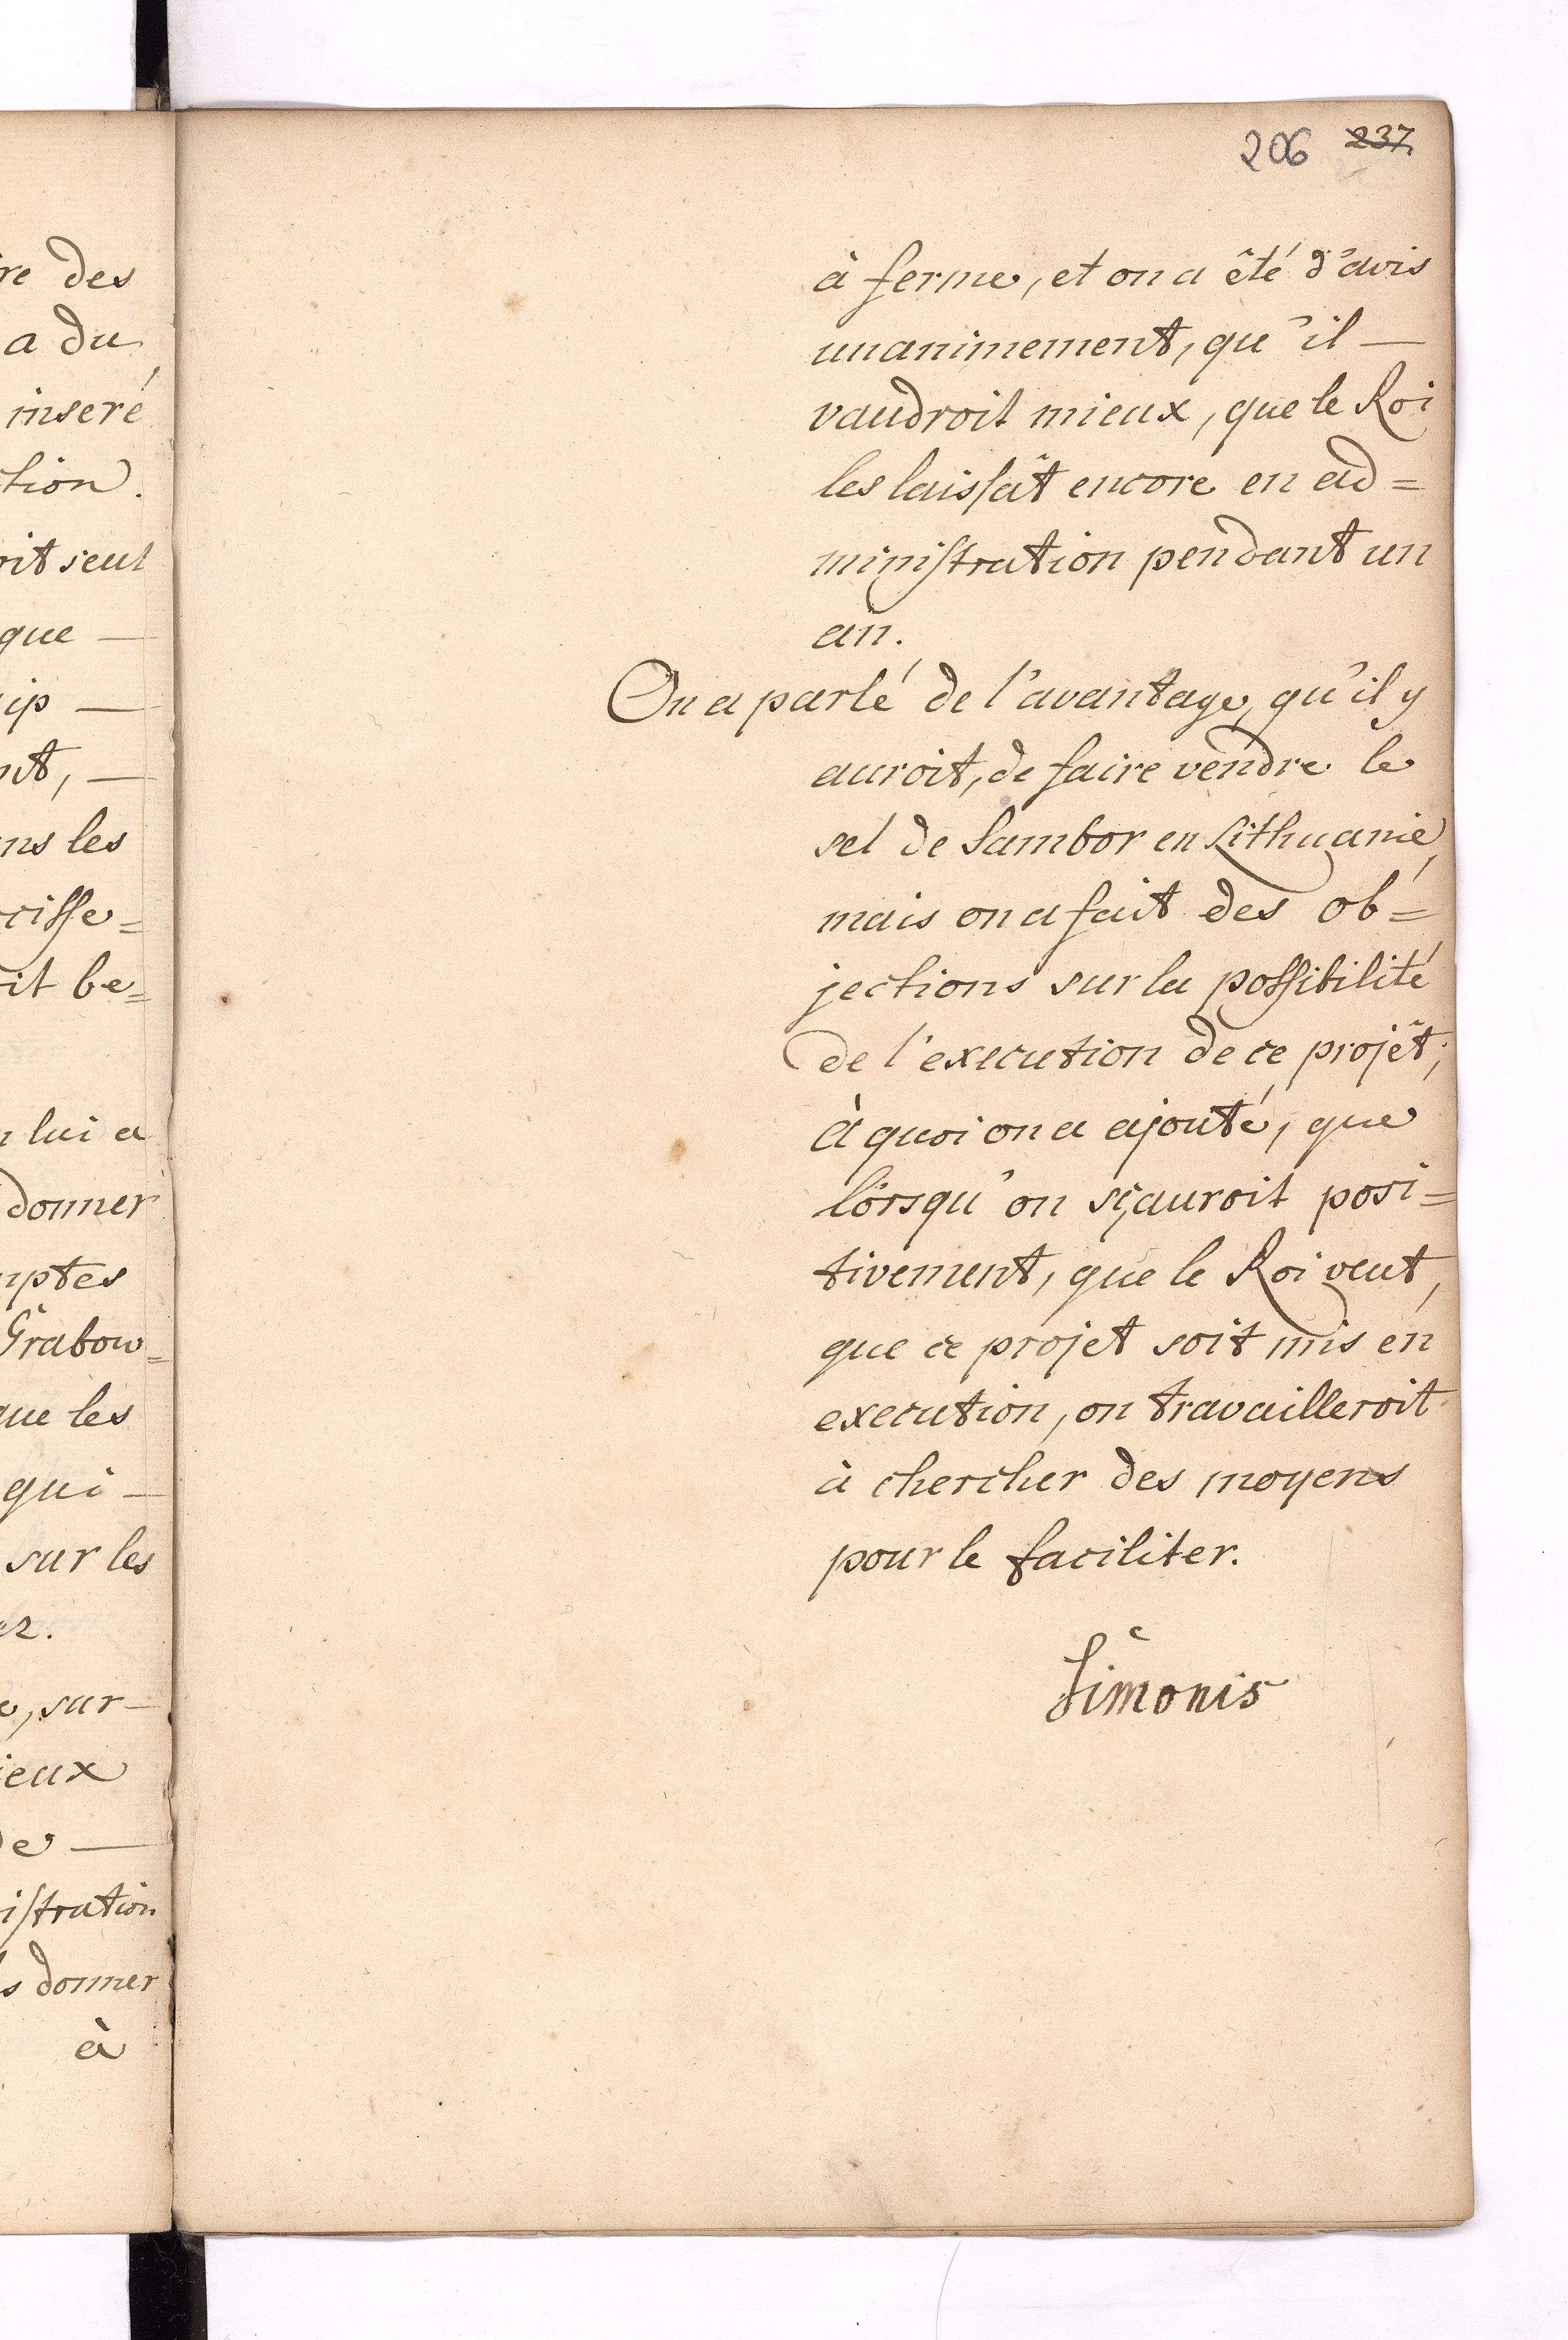 re des
a du
inseré
ction.
oit seul
que —
ip —
nt, —
ns les
cisse=
it be=
lui a
donner
mptes
Grabow=
que les
qui —
sur les
e, sur—
ieux
de —
istration
s donner
à
206 237
à ferme, et on a êté d'avis
unanimement, qu'il —
vaudroit mieux, que le Roi
les laissât encore en ad=
ministration pendant un
an.
On a parlé de l'avantage, qu'il y
auroit, de faire vendre le
sel de Sambor en Lithuanie,
mais on a fait des ob=
jections sur la possibilité
de l'execution de ce projêt;
à quoi on a ajouté, que
lorsqu'on sçauroit posi=
tivement, que le Roi veut,
que ce projet soit mis en
execution, on travailleroit
à chercher des moyens
pour le faciliter.
Simonis